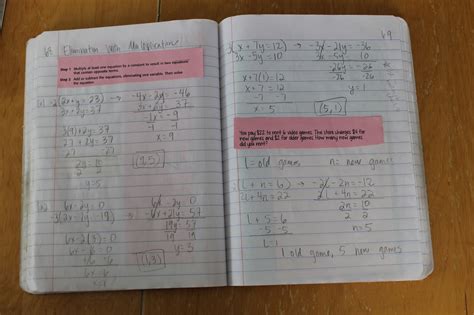 6.9 Elimination With Multiplication
Step 1: Multiply at least one equation by a constant to result in two equations
that contain opposite terms.
Step 2: Add or subtract the equations, eliminating one variable. Then solve
the equation.
-2(2x+y=23) → -4x-2y=-46
3x+2y=37 3x+2y=37
-1x=-9
3(9)+2y=37
27+2y=37 x=9
-27 -27
2y=10
2 2
y=5
6x-2y=0 6x-2y=0
→ -6x+21y=57
6x-2(3)=0 19y=57
6x-6=0 19 19
+6 +6 y=3
(1,3)
6.9
-3(x+7y=12) → -3x-21y=-36
3x-5y=10 3x-5y=10
-26y=-26
x+7(1)=12 -26 -26
x+7=12 y=1
-7 -7
x=5 (5,1)
You pay $22 to rent 6 video games. The store charges $4 for
new games and $2 for older games. How many new games
did you rent?
l=old games n=new games
(l+n=6) → -2l-2n=-12
2l+4n=22 2l+4n=22
2n=10
l+5=6 2 2
-5 -5 n=5
l=1
1 old game, 5 new games